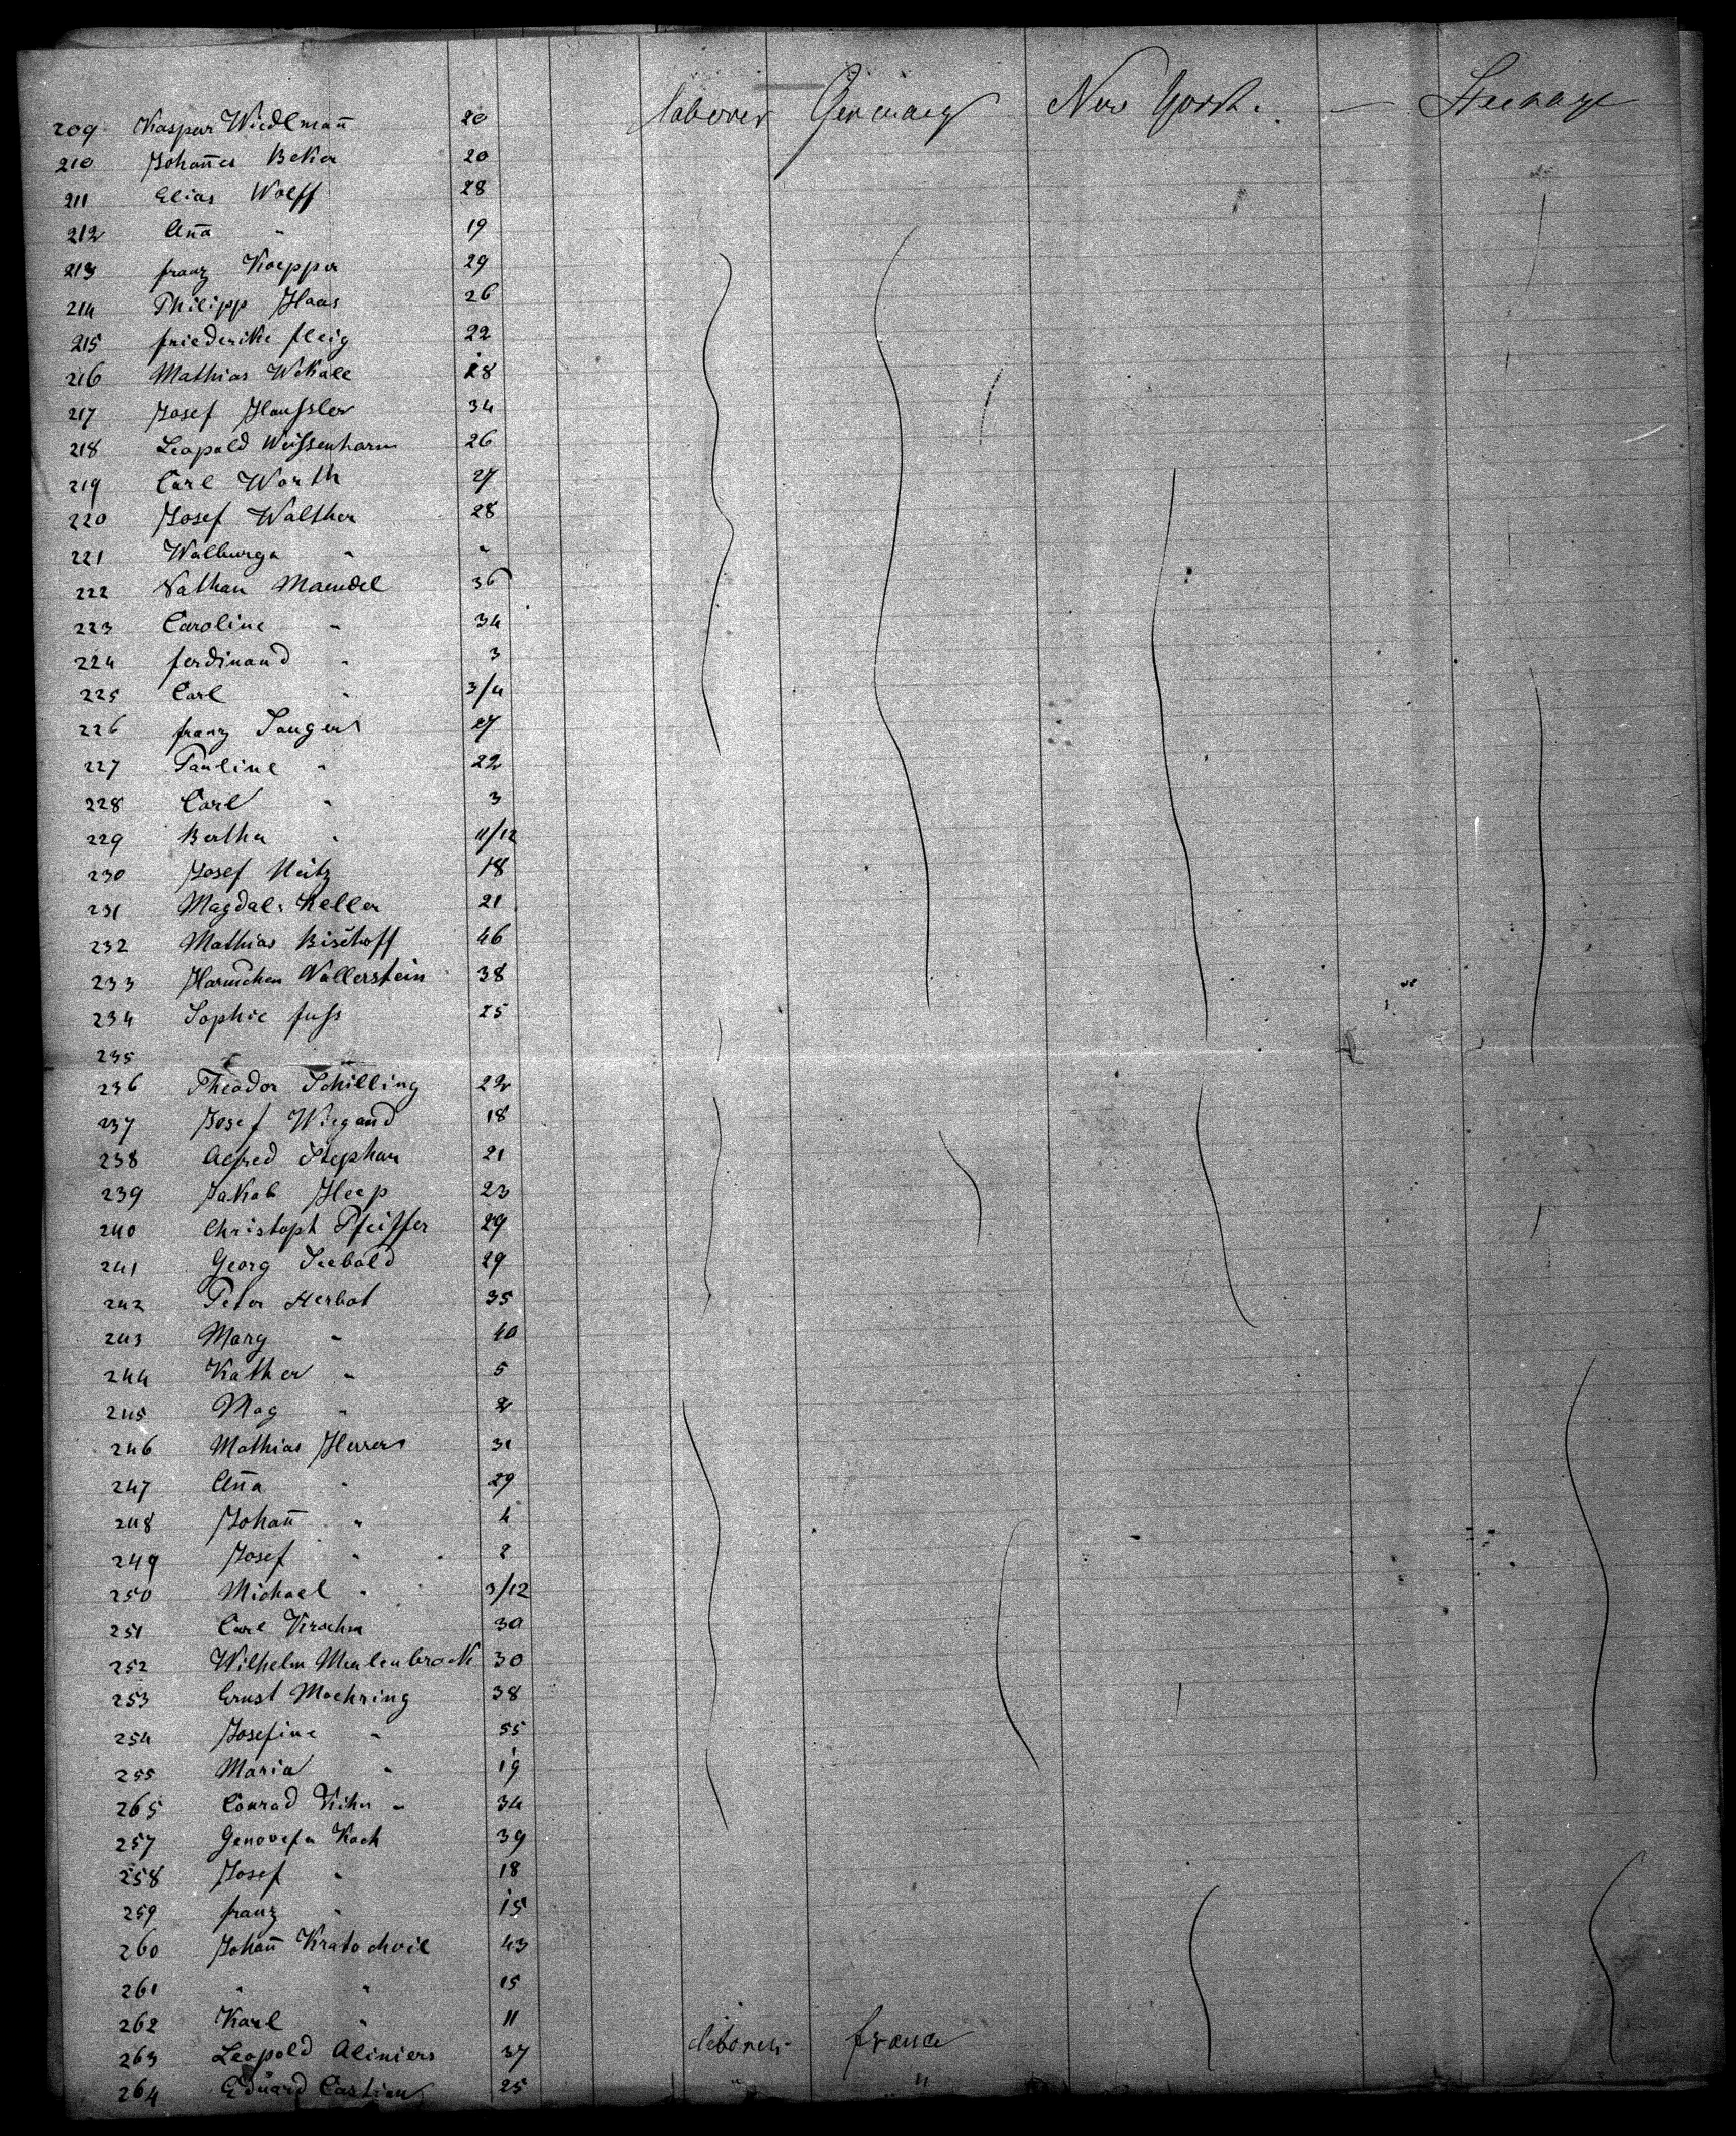 209 Kaspar Wiedlman̄ 20 laborer Germany New York. — Steerage
210 Johan̄es Beker 20
211 Elias Wolff 28
212 An̄a " 19
213 franz Koepper 29
214 Philipp Haas 26
215 friederike fleig 22
216 Mathias 28
217 Josef Haussler 34
218 Leopold Weissenhorn 26
219 Carl Worth 27
220 Josef Walther 28
221 Walburga " "
222 Nathan Maendel 36
223 Caroline " 34
224 ferdinand " 3
225 Carl " 3/4
226 franz 27
227 Pauline " 22
228 Carl " 3
229 Bertha " 11/12
230 Josef 18
231 Magdal. Keller 21
232 Mathias Bischoff 46
233 Wallerstein 38
234 Sophie fuss 25
235
236 Theodor Schilling 22
237 Josef Wiegand 18
238 Alfred Stephan 21
239 Jakob Heep 23
240 Christoph Pfeiffer 29
241 Georg Seebold 29
242 Peter Herbot 35
243 Mary " 40
244 Kather " 5
245 Mag " 2
246 Mathias 31
247 An̄a " 29
248 Johan̄ " 4
249 Josef " 2
250 Michael " 3/12
251 Carl 30
252 Wilhelm Meulenbrock 30
253 Ernst Moehring 38
254 Josefine " 55
255 Maria " 19
265 Conrad Kihn " 34
257 Genovefa Koch 39
258 Josef " 18
259 franz " 15
260 Johan̄ Kratochvil 43
261 " " 15
262 Karl " 11
263 Leopold Aliniers 37 laborer france
264 Eduard 25 " "